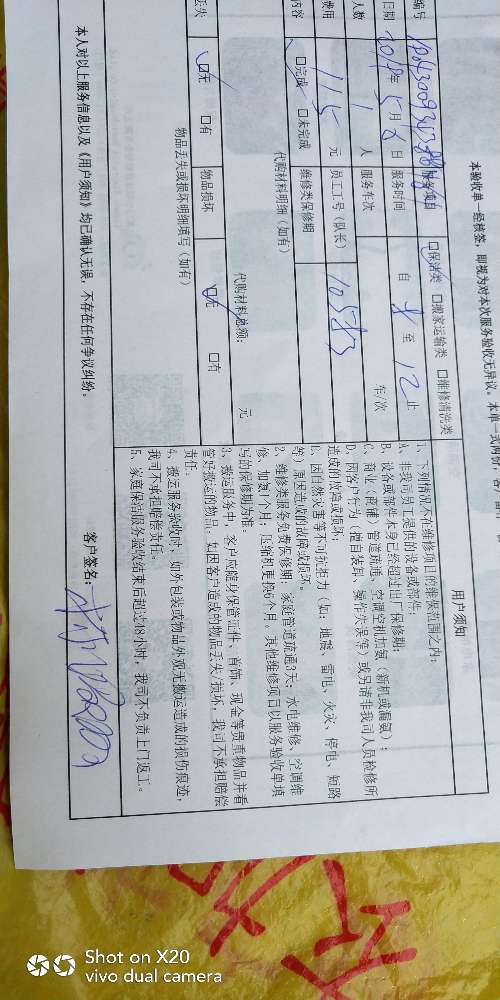 本验收单一经核签，即视为对本次服务验收无异议。本单一式两份，客户留
编号 服务项目 保洁类 搬家运输类 维修清洗类
日期 2018年5月8日 服务时间 自 8 至 12 止
人数 1 人 服务车次 车/次
费用 115 元 员工工号（队长） 10583
内容 完成 未完成 维修类保修期
代购材料明细（如有）
代购材料总额： 元
丢失 无 有 物品损坏 无 有
物品丢失或损坏明细填写（如有）
用户须知
1、下列情况不在维修项目的维保范围之内：
A、非我司员工提供的设备或部件；
B、设备或部件本身已经超过出厂保修期；
C、商业（商铺）管道疏通、空调空机加氨（新机或漏氨）；
D、因客户行为（擅自装卸、操作失误等）或另请非我司人员检修所
造成的故障或损坏；
E、因自然灾害等不可抗拒力（如：地震、雷电、火灾、停电、短路
等）原因造成的故障或损坏。
2、维修类服务免费保修期：家庭管道疏通3天；水电维修、空调维
修、加氨1个月；压缩机更换6个月。其他维修项目以服务验收单填
写的保修期为准。
3、搬运服务中，客户应随身保管证件、首饰、现金等贵重物品并看
管好搬运的物品，如因客户造成的物品丢失/损坏，我司不承担赔偿
责任。
4、搬运服务验收时，如外包装或物品外观无搬运造成的损伤痕迹，
我司不承担赔偿责任。
5、家庭保洁服务验收结束后超过48小时，我司不负责上门返工。
本人对以上服务信息以及《用户须知》均已确认无误，不存在任何争议纠纷。
客户签名：
Shot on X20
vivo dual camera